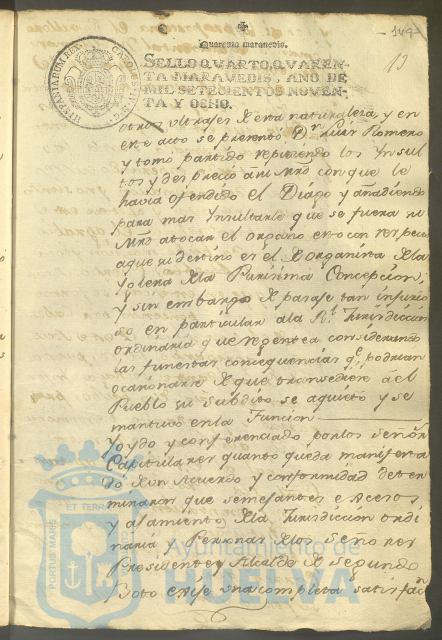 149
Quarenta maravedis.
13
SELLO QVARTO, QVAREN-
TA MARAVEDIS, AÑO DE
MIL SETECIENTOS NOVEN-
TA Y OCHO.
HISPANIARUM REX
CAROL
otros ultrajes de esta naturaleza, y en
este acto se presentó Dn. Romero
y tomó partido repitiendo los Ynsul
tos y desprecio a mi con que le
havia ofendido el Diago y añadiendo
para mas Ynsultarle que se fuera su
a tocar el organo esto con respec
a que su destino es el de organista de la
Yglesia de la Purisima Concepcion,
y sin embargo de pasaje tan injurio
so en particular a la Rl. Jurisdiccion
ordinaria que regenta considerando
las funestas consequencias qe. podrian
ocasionarse de que trasendiere a el
Pueblo su subdito se aquietó y se
mantuvo en la Funcion
Yoydo y conferenciado por los señors
Capitulares quanto queda manifesta
do de un Acuerdo y conformidad deter
minaron que semejantes excesos
y ajamiento de la Jurisdiccion ordi
naria y Personas de los Señores
Presidente y Alcalde de segundo
Voto exije una completa satisfacn
PORTUS MARIS
ET TERRAE
Ayuntamiento de
HUELVA